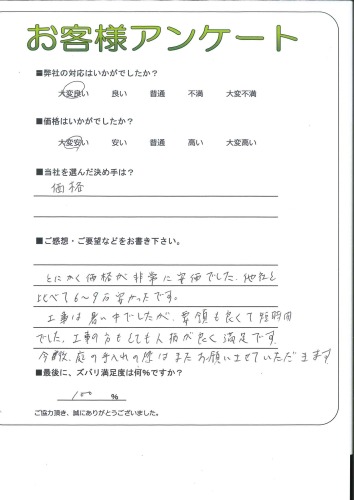 お客様アンケート
■弊社の対応はいかがでしたか?
大変良い 良い 普通 不満 大変不満
■価格はいかがでしたか?
大変安い 安い 普通 高い 大変高い
■当社を選んだ決め手は?
価格
■ご感想・ご要望などをお書き下さい。
とにかく価格が非常に安価でした。他社と
比べて6~9万安かったです。
工事は暑い中でしたが、要領も良くて短時間
でした。工事の方もとても人柄が良く満足です。
今後、庭の手入れの際はまたお願いさせていただきます
■最後に、ズバリ満足度は何%ですか?
100 %
ご協力頂き、誠にありがとうございました。